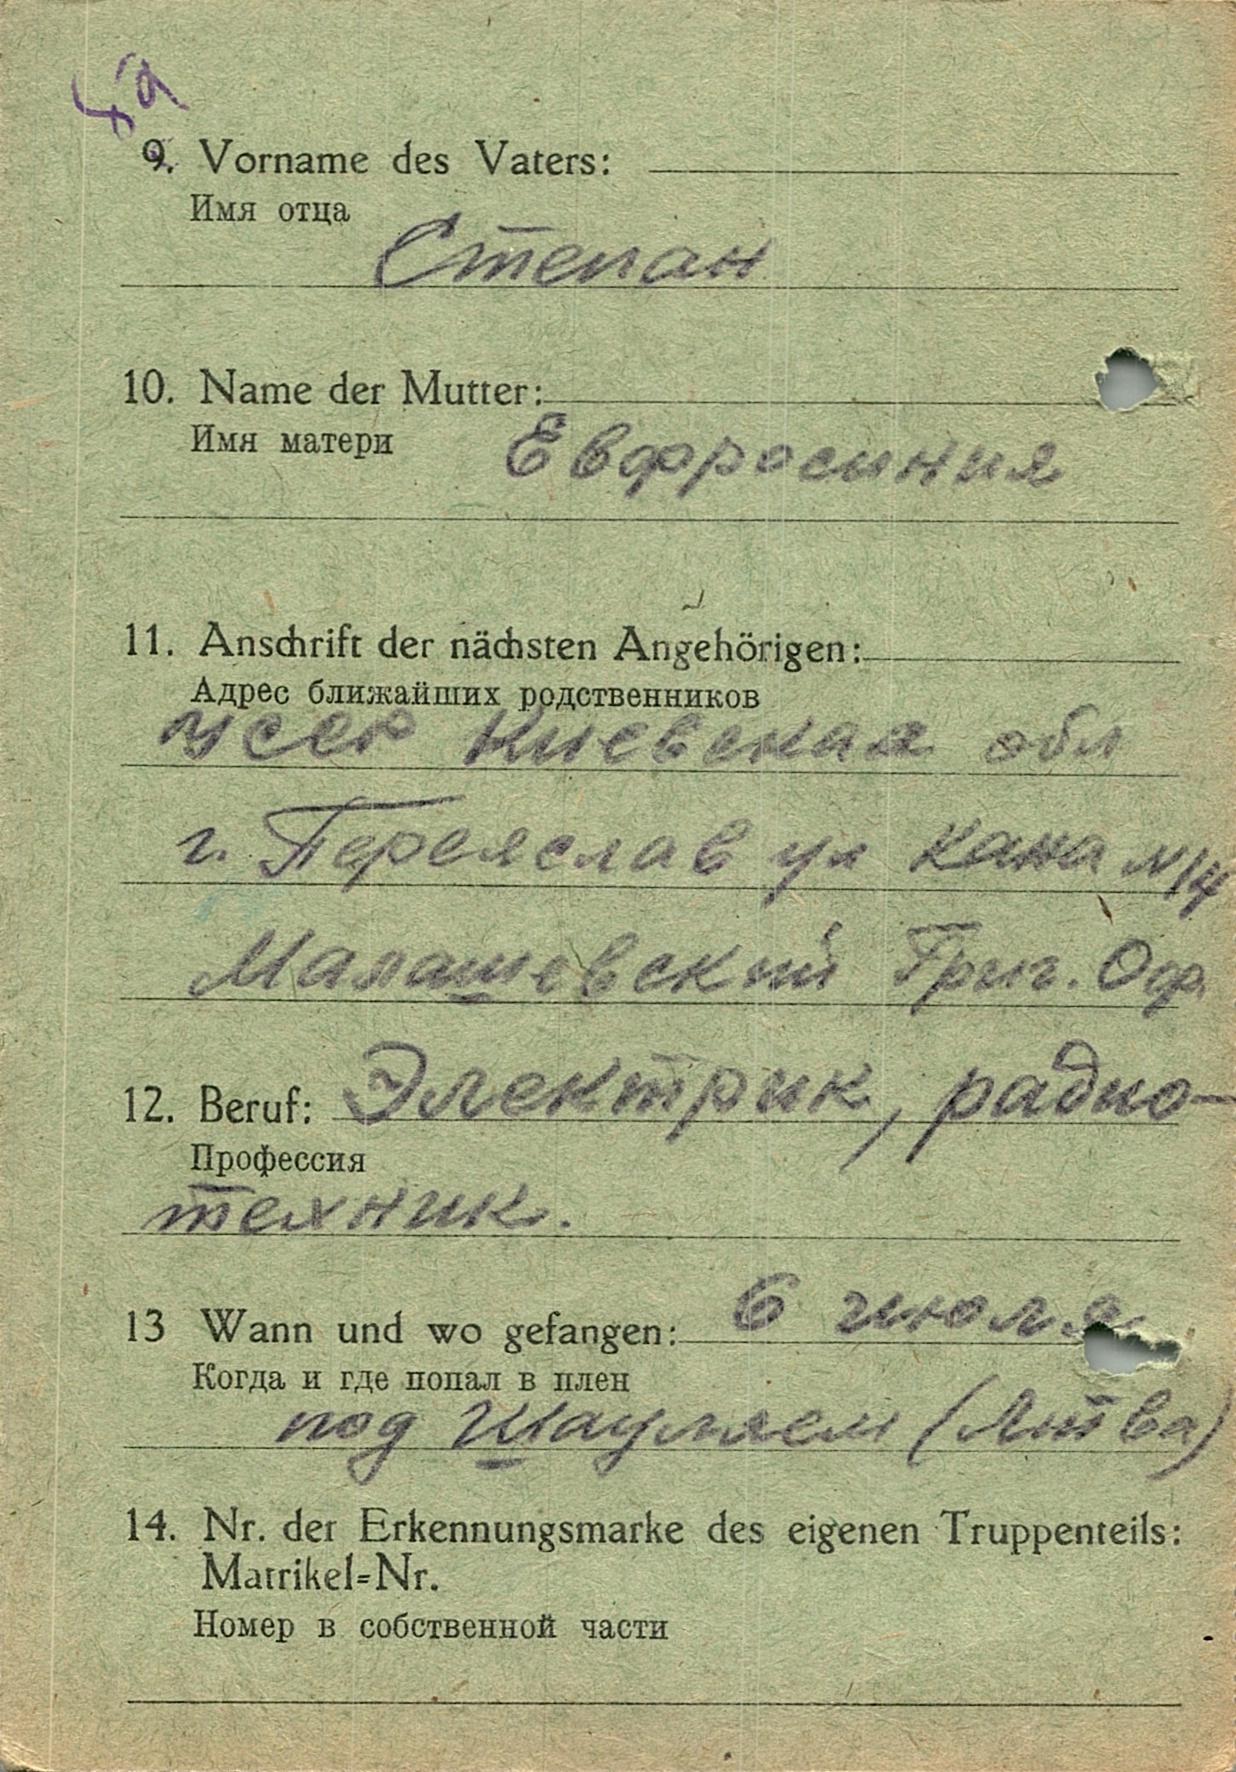 9. Vorname des Vaters:
Имя отца
Степан
10. Name der Mutter:
Имя матери
Евфросиния
11. Anschrift der nächsten Angehörigen:
Адрес ближайших родственников
УССР Киевская обл
г. Переяслав ул Кана № 14
Малашевский Григ. Оф.
12. Beruf: Электрик, радио-
Профессия
техник.
13 Wann und wo gefangen: 6 июля
Когда и где попал в плен
под Шауляем (Литва)
14. Nr. der Erkennungsmarke des eigenen Truppenteils:
Matrikel=Nr.
Номер в собственной части